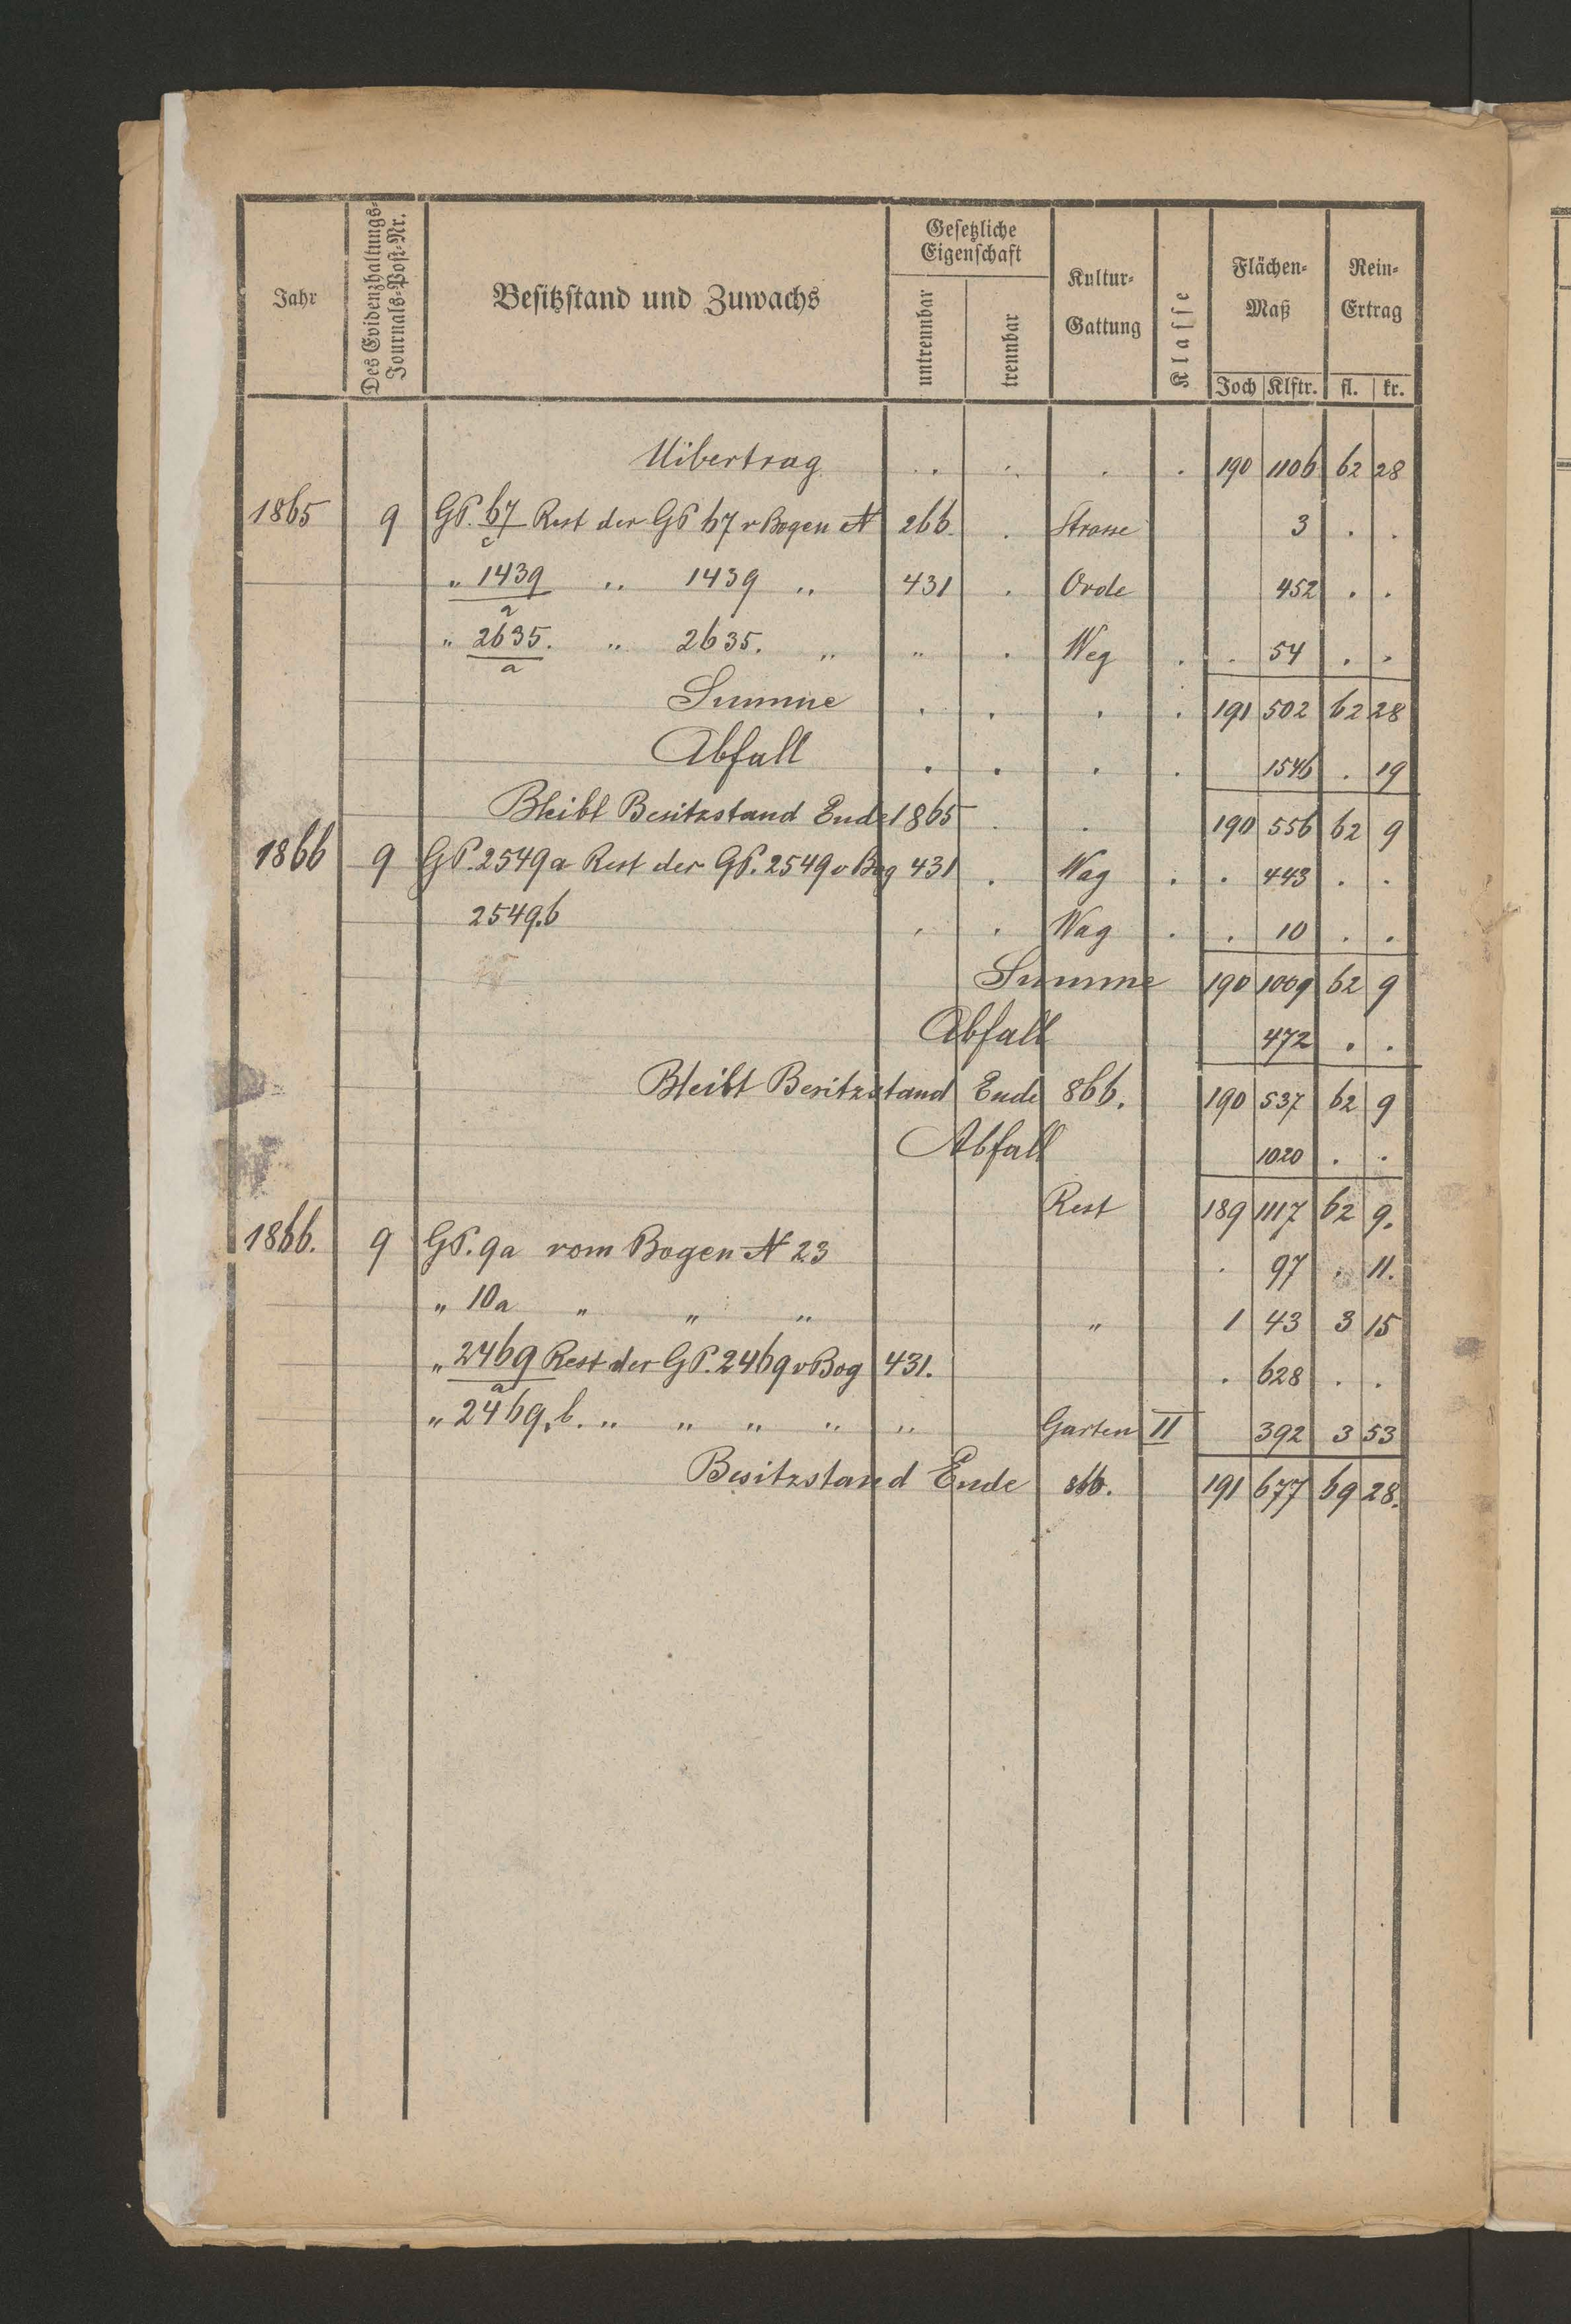 Jahr
Des Evidenzhaltungs-
Journals-Post-Nr.
Besitzstand und Zuwachs
Gesetzliche
Eigenschaft
untrennbar
trennbar
Kultur-
Gattung
Klasse
Flächen-
Maß
Joch Klftr.
Rein-
Ertrag
fl. kr.
Uibertrag . . . . 190 1106 62 28
1865 9 GP. 67/c Rest der GP 67 v Bogen N 266. . Strasse 3 . .
„ 1439/a „ 1439 „ 431 . Orde 452 . .
„ 2635./a „ 2635. „ „ . Weg . . 54 . .
Summe . . . . 191 502 62 28
Abfall . . . . 1546 . 19
Bleibt Besitzstand Ende 1865 . . 190 556 62 9
1866 9 GP. 2549a Rest der GP. 2549 v Bog 431 . Wag . . 443 . .
2549.b . . Wag . . 10 . .
Summe 190 1009 62 9
Abfall 472 . .
Bleibt Besitzstand Ende 866. 190 537 62 9
Abfall 1020 . .
Rest 189 1117 62 9.
1866. 9 GP. 9a vom Bogen N 23 . 97 . 11.
„ 10a „ „ „ „ 1 43 3 15
„ 2469/a Rest der GP. 2469 v Bog 431. . 628 . .
„ 2469.b. „ „ „ „ „ Garten II 392 3 53
Besitzstand Ende 866. 191 677 69 28.